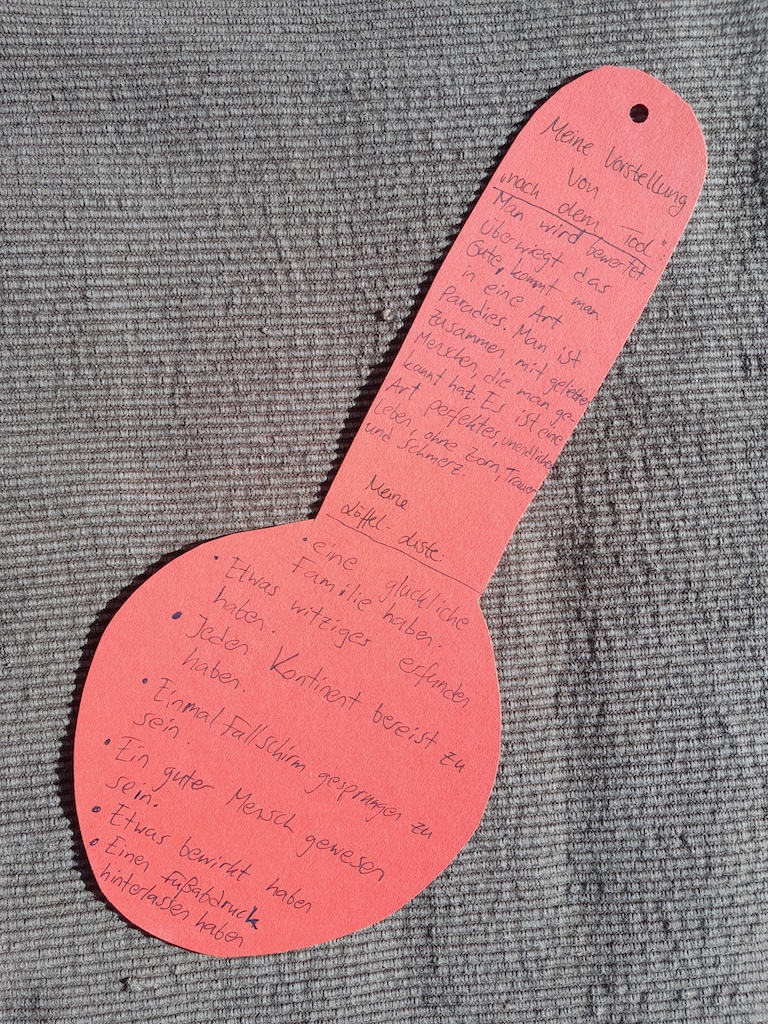 Meine Vorstellung
von
„nach dem Tod":
Man wird bewertet.
Überwiegt das
Gute, kommt man
in eine Art
Paradies. Man ist
zusammen mit geliebten
Menschen, die man ge-
kannt hat. Es ist eine
Art perfektes, unendliches
Leben, ohne Zorn, Trauer
und Schmerz.
Meine
Löffel-Liste:
• eine glückliche
Familie haben.
• Etwas witziges erfunden
haben.
• Jeden Kontinent bereist zu
haben.
• Einmal Fallschirm gesprungen zu
sein.
• Ein guter Mensch gewesen
sein.
• Etwas bewirkt haben
• Einen Fußabdruck
hinterlassen haben